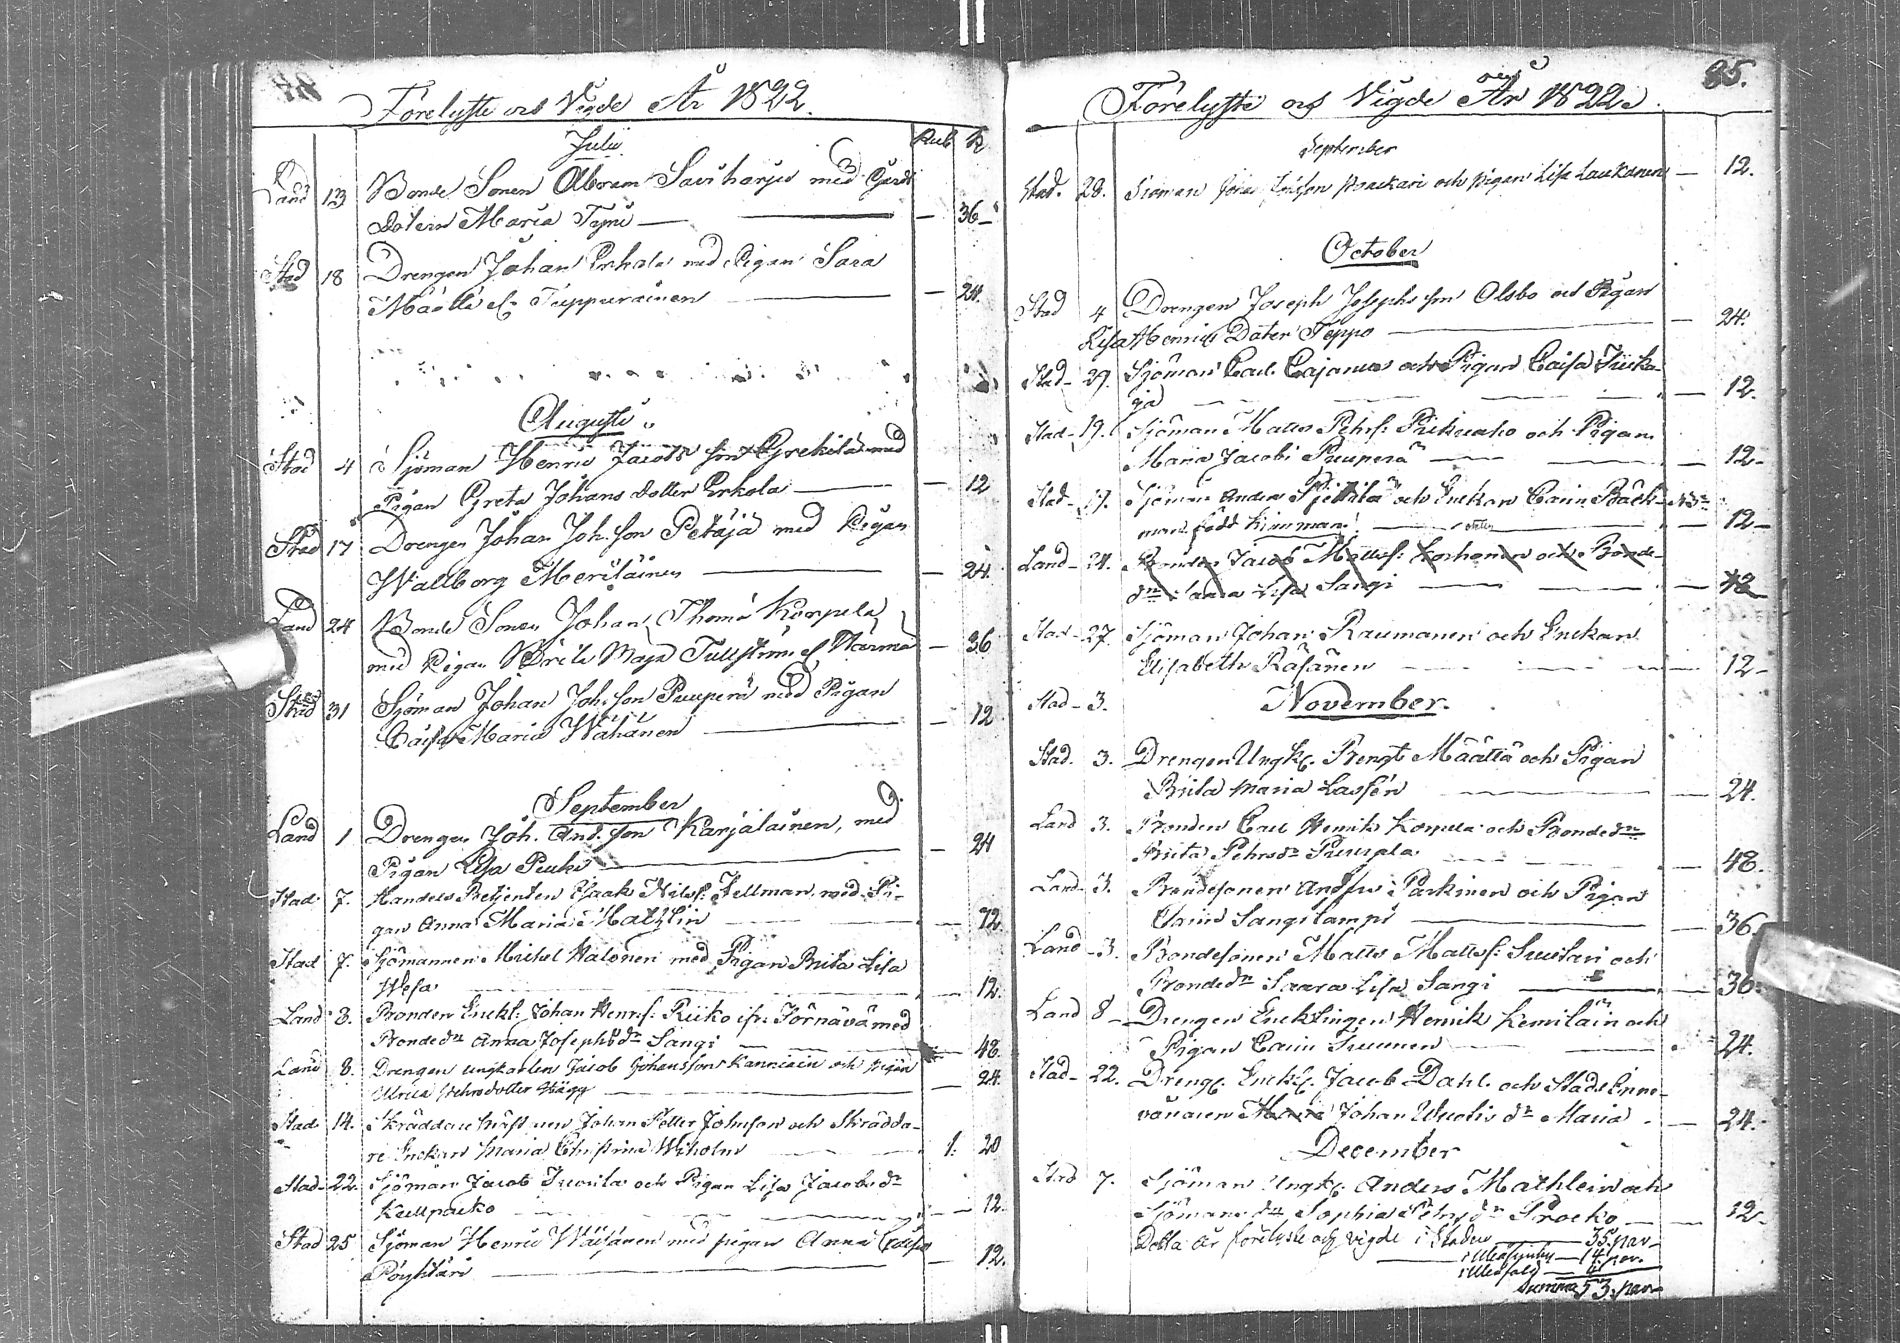 Förelyste och Vigde År 1822.
Rub K
Julii
Land 13 Bonde Sonen Abram Saviharju med Gårds
Dotern Maria Tyni — — 36
Stad 18 Drengen Johan Erkola med Pigan Sara
Määttä el. Tuppurainen — — 24.
Augusti
Stad 4 Sjöman Henric Jacobs son Grekilä med
Pigan Greta Johans dotter Erkola — — 12
Stad 17 Drengen Johan Joh. son Petäjä med Pigan
Wallborg Meriläinen — — 24.
Land 24 Bonde Sonen Johan Thoms Korpela
med Pigan Brita Maja Tullström el Warma — 36
Stad 31 Sjöman Johan Joh. son Puuperä med Pigan
Caisa Maria Wähänen — — 12
September
Land 1 Drengen Joh. And. son Karjalainen, med
Pigan Lisa Peuha — — 24
Stad 7. Handels Betjenten Isaak Nilss: Fellman med Pi-
gan Anna Maria Mathlin — 72
Stad 7. Sjömannen Michel Halonen med Pigan Brita Lisa
Wesa — 12.
Land 8. Bonden Enckl: Johan Henrs: Riiko ifr. Törnävä med
Bondedr Anna Josephsdr Sangi — 48.
Land 8. Drengen ungkarlen Jacob Johansson Kanniain och pigan
Ulrica Pehrsdotter Hägg — — 24.
Stad 14. Skräddare Johan Petter Johnson och Skrädda-
re Enckan Maria Christina Wiholm 1. 20
Stad 22. Sjöman Jacob Juusila och Pigan Lisa Jacobsdr
Kullpacko — 12.
Stad 25 Sjöman Henric Wäisänen med pigan Anna Caisa
Pöyhtäri — — 12.
85.
Förelyste och Vigde År 1822.
September
Stad. 28. Sioman Johan och Pigan Lisa Laukanen — 12.
October
Stad 4 Drengen Joseph Josephs son Olsbo och Pigan
Lisa Henrics Doter Teppo — — 24.
Stad- 29. Sjöman Carl Cajanus och Pigan Caisa Tuiska-
ja — 12.
Stad- 19. Sjöman Matts Pehrs: Pukuaho och Pigan
Maria Jacobs Puuperä — — 12-
Stad- 19. Sjöman Anders Pietilä och Enckan Carin Bäck-
man född Kinnman — — 12-
Land- 24. Bonden Jacob Mattss: Korhonen och Bonde-
dr: Saara Lisa Sangi — — 48
Stad- 27. Sjöman Johan Raumanen och Enckan
Elisabeth Räsänen — 12-
Stad- 3. November.
Stad. 3. Drengen Ungk. Bengt Määttä och Pigan
Brita Maria Lassén — 24.
Land 3. Bonden Carl Henrik Korpela och Bondedr
Brita Pehrsdr Puurpla — 48.
Land 3. Bondesonen Anders Parkinen och Pigan
Carin Sangilampi — — 36.
Land - 3. Bondesonen Matts Mattss: Suutari och
Bondedr Saara Lisa Sangi — 36.
Land 8 Drengen Encklingen Henrik Kemiläin och
Pigan Carin Suunen — 24.
Stad- 22. Dreng. Enckl. Jacob Dahl. och Stads Inne-
vånaren Johan Wuotis dr Maria — 24.
December
Stad 7. Sjöman Ungk. Anders Mathlein och
Sjömans dr Sophia Pehrsdr Procko — 12-
Detta år förelyste och vigde i Staden — 35 par
i Uleåsjuby — 14 par.
i Uleåsalo — 4.
Summa 53. par